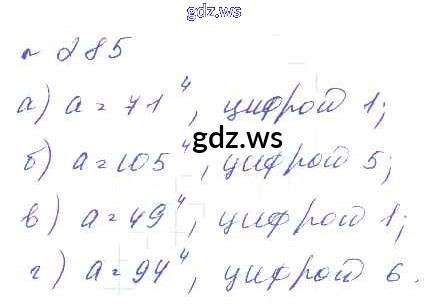 gdz.ws
№ 285
а) a = 71⁴, цифрой 1;
gdz.ws
б) a = 105⁴, цифрой 5;
в) a = 49⁴, цифрой 1;
г) a = 94⁴, цифрой 6.